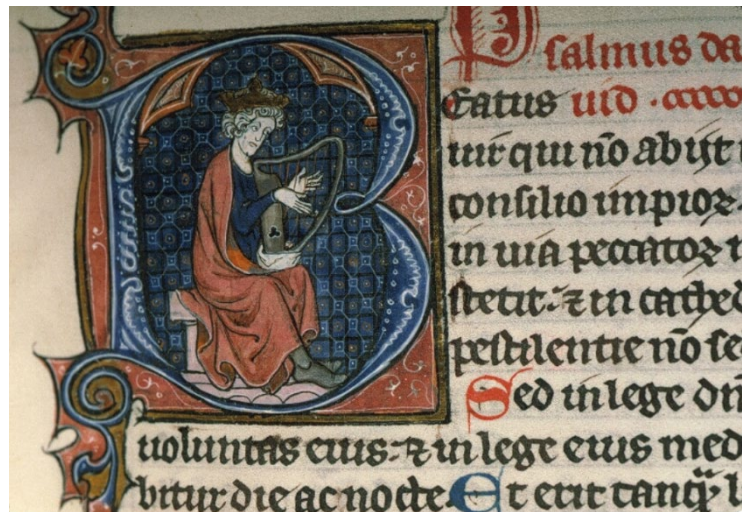 Psalmus da
Beatus uid
uir qui nō abijt
consilio impioꝝ.
in uia peccatoꝝ
stetit. ⁊ in cathed
pestilentie nō se
Sed in lege dn̄
uoluntas eius. ⁊ in lege eius med
bitur die ac nocte. Et erit tanqͣ l